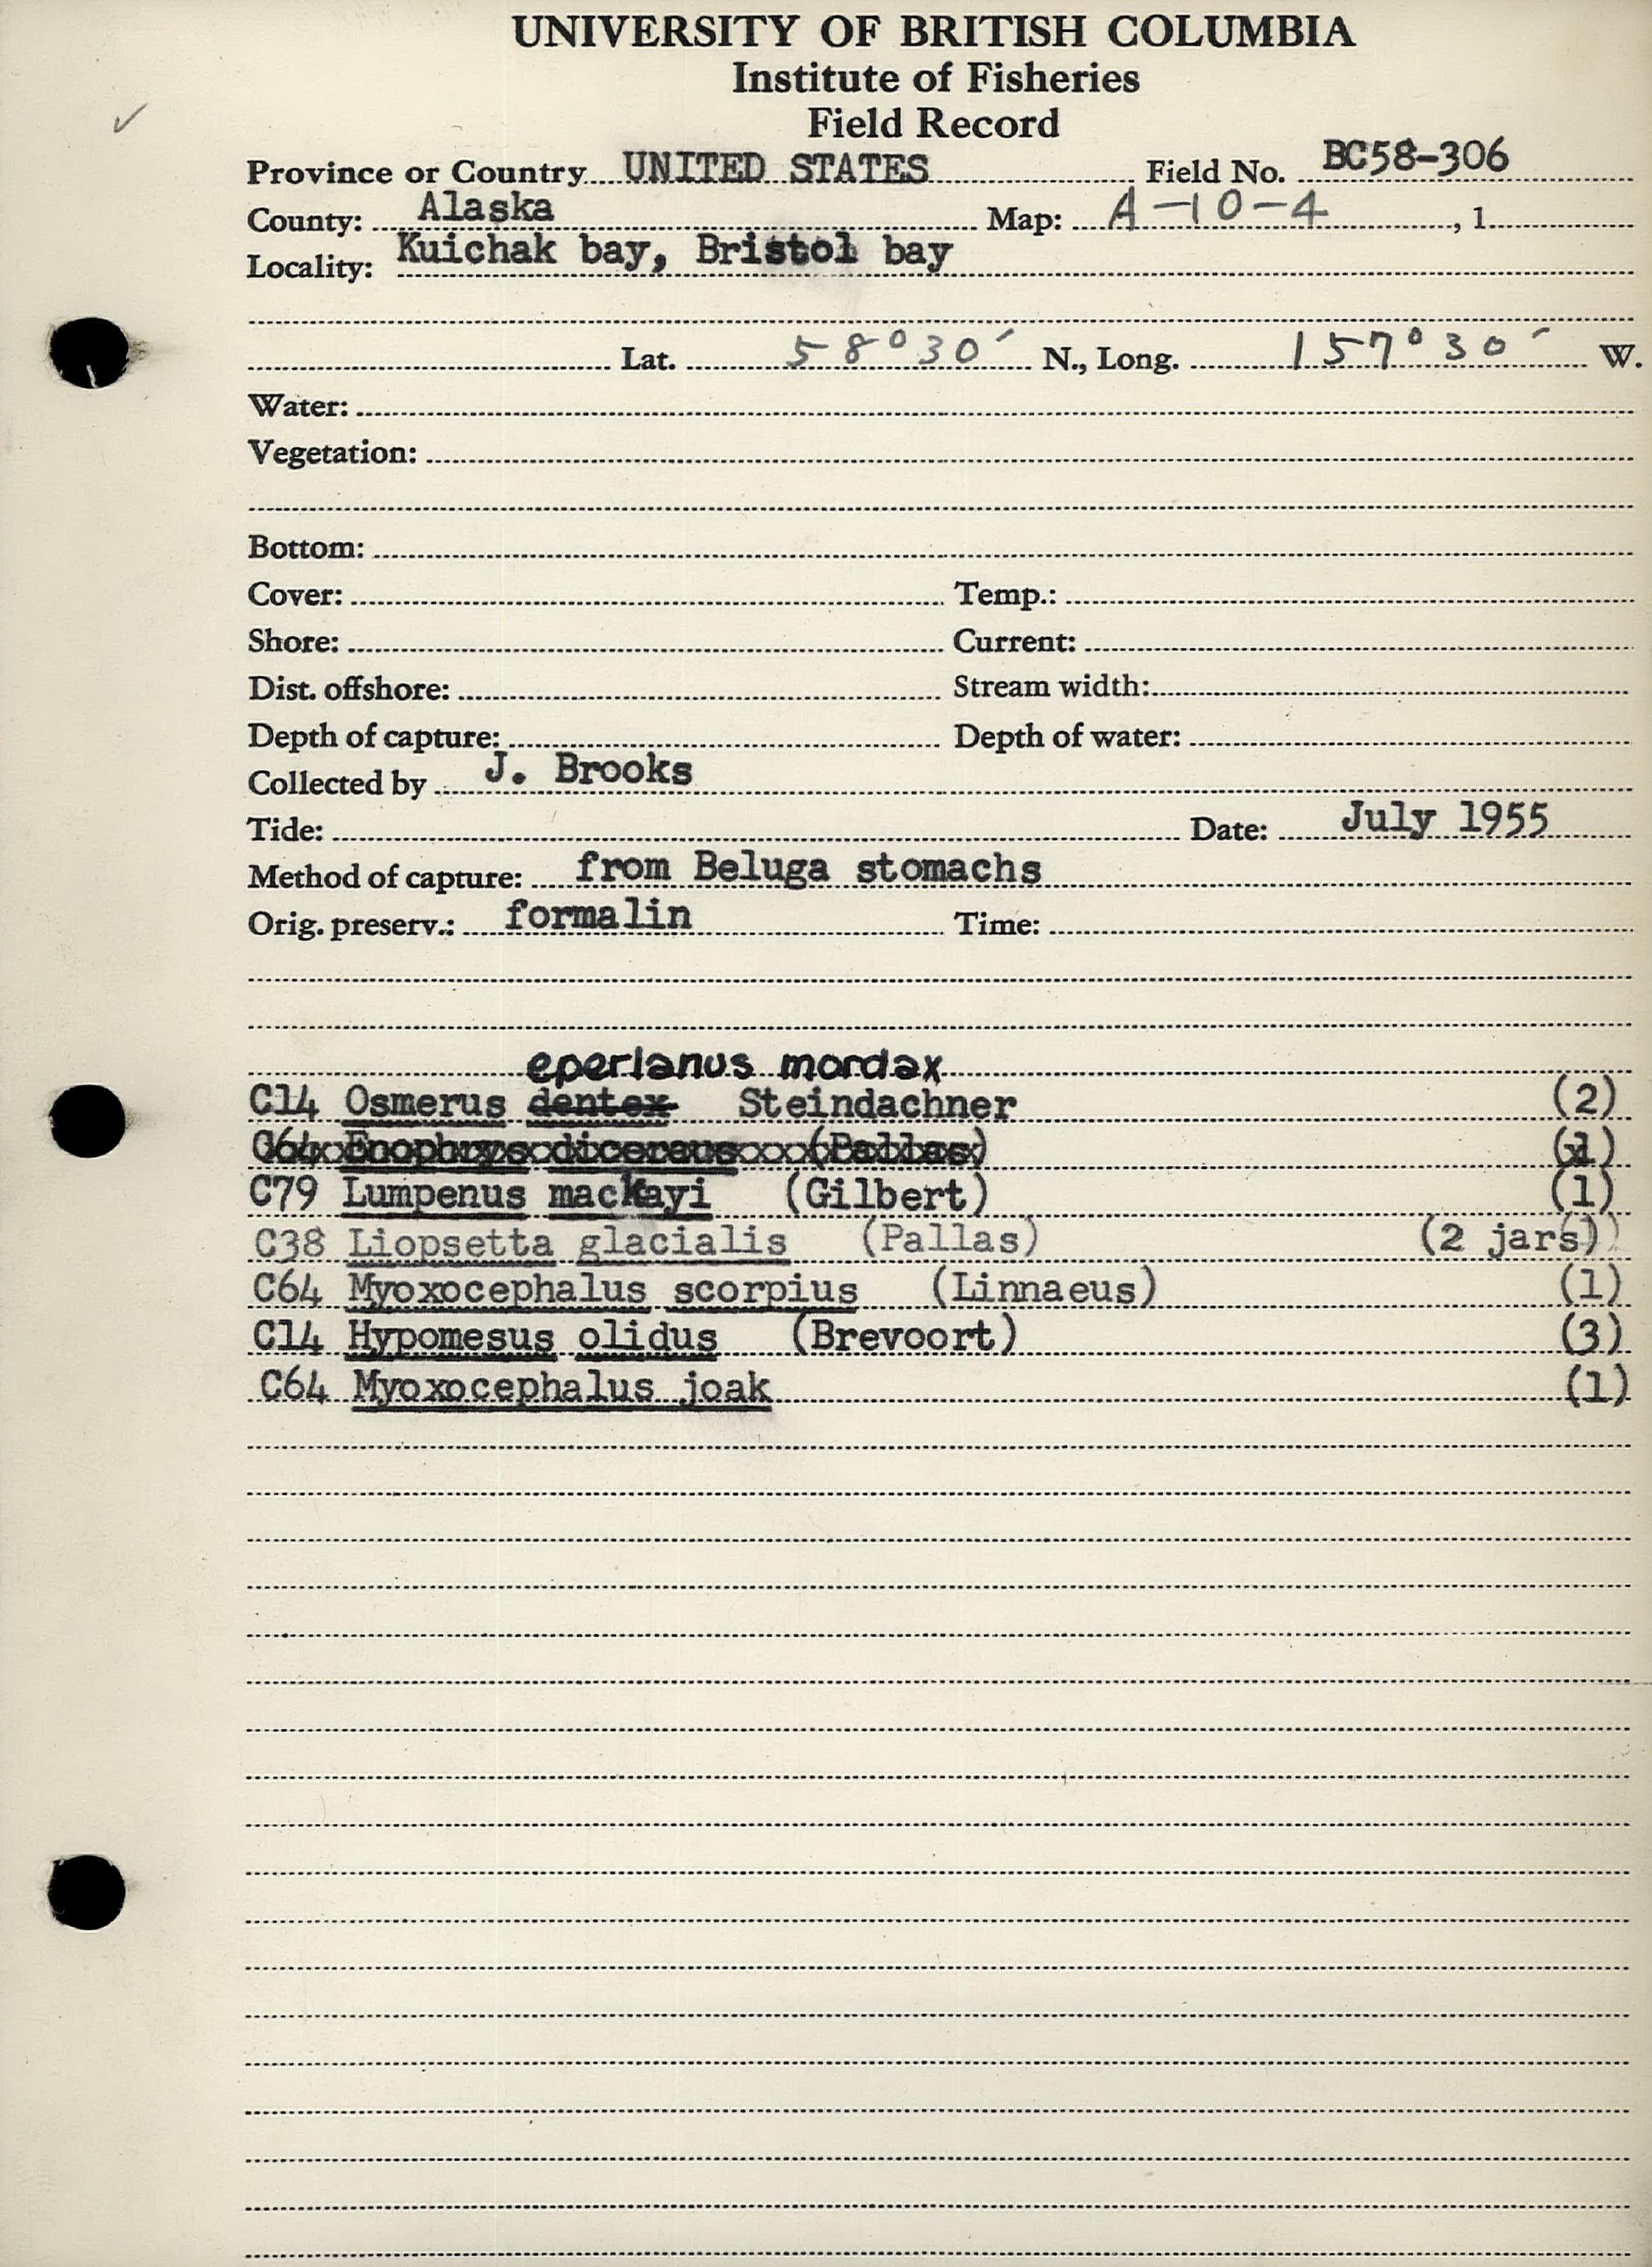 UNIVERSITY OF BRITISH COLUMBIA
Institute of Fisheries
Field Record
✓
Province or Country UNITED STATES Field No. BC58-306
County: Alaska Map: A-10-4, 1
Locality: Kuichak bay, Bristol bay
Lat. 58°30′ N., Long. 157°30′ W.
Water:
Vegetation:
Bottom:
Cover: Temp.:
Shore: Current:
Dist. offshore: Stream width:
Depth of capture: Depth of water:
Collected by J. Brooks
Tide: Date: July 1955
Method of capture: from Beluga stomachs
Orig. preserv.: formalin Time:
eperlanus mordax
C14 Osmerus dentex Steindachner (2)
C64 Enophrys diceraus (Pallas) (1)
C79 Lumpenus mackayi (Gilbert) (1)
C38 Liopsetta glacialis (Pallas) (2 jars)
C64 Myoxocephalus scorpius (Linnaeus) (1)
C14 Hypomesus olidus (Brevoort) (3)
C64 Myoxocephalus joak (1)